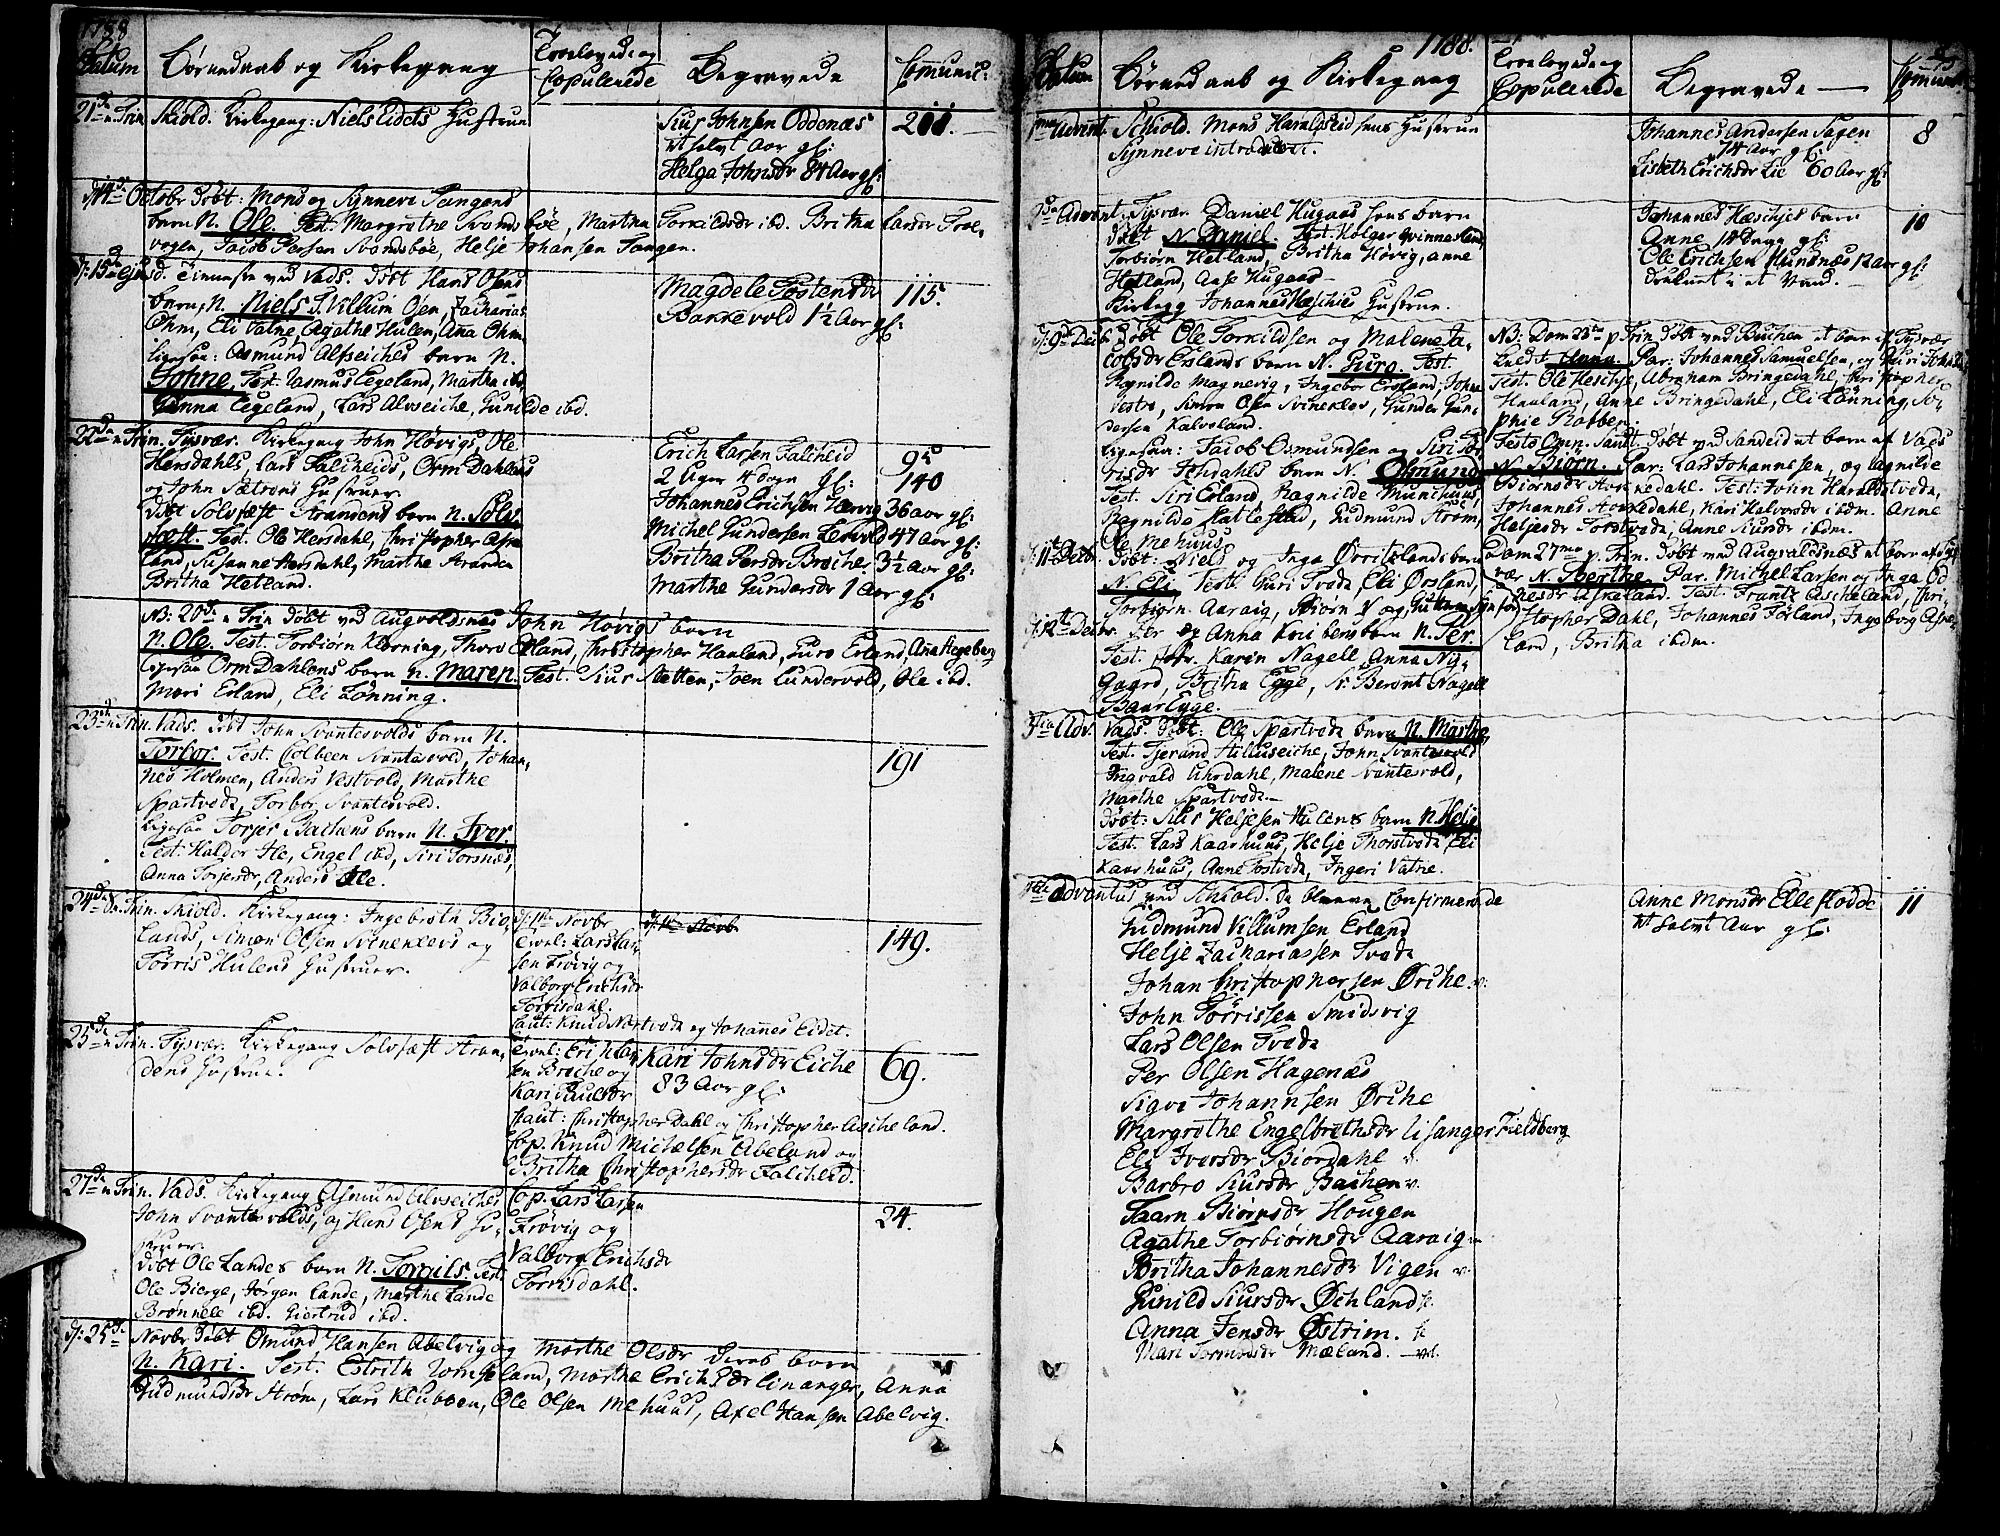 1788
Datum
Børnedaab og Kirkegang
Troelovede og
Copulerede
Begravede
Communic:
21de n Trin Skiold. Kirkegang: Niels Eidets Hustrue
Siur Johnsen Oddenæs
et halvt Aar gl:
Helga Johnsdr 84 Aar gl:
d 14de Octobr døbt: Mons og Synneve Tangens
barn N. Ole. Test. Margrethe Svandsbøe, Martha Torkildsdr ibd. Britha Larsdr Troe-
vogen, Jacob Persen Svandsbøe, Helje Johansen Tangen.
d: 15de ejusd. Tienneste ved Vads. døbt Hans Øsens
barn N. Niels T. Villum Øsen, Zacharias
Ohm, Eli Vatne, Agathe Hulen, Ana Ohm
Ligesaa: Asmund Alfseiches barn N.
Johne, Test. Rasmus Eegeland, Martha ibd,
Anna Eegeland, Lars Alvseiche, Gunilde ibd.
Magdele Tostensdr
Bakkevold 1½ Aar gl:
115.
22de n Trin. Tysvær. Kirkegang John Høvigs, Ole
Hersdahls, Lars Falcheids, Orm Dahlens
og John Sætrens Hustruer.
døbt Solvfæst Strandens barn N. Sølv-
fæst. Test. Ole Hersdahl, Christopher Aske-
land, Susanne Hersdahl, Marthe Stranden
Britha Hetland.
Erich Larsen Falcheid
2 Uger 4 dage gl:
Johannes Erichsen Hervig 36 aar gl:
Michel Gundersen Lervold 47 Aar gl:
Britha Persdr Broche 3½ Aar gl:
Marthe Gundersdr 1 Aar gl:
95
140
NB: 20de n Trin døbt ved Augvoldsnæs John Høvigs barn
N. Ole. Test. Torbiørn Kløvning, Thore Erland, Christopher Hauland, Guro Erland, Ana Hegeberg
Ligesaa Orm Dahlens barn N. Maren. Test. Siur Støtten, Joen Gundervold, Ole ibd.
Mari Erland, Eli Lønning.
23de n Trin. Vads. døbt John Svantesvolds barn N.
Torbor. Test. Colbeen Svantesvold, Johan-
nes Holmen, Anders Vestvold, Marthe
Spartvedt, Torbor Svantesvold.
Ligesaa Torjer Bachens barn N. Iver,
Test. Haldor Ile, Engel ibd, Siri Torsnæs,
Anna Torjersdr, Anders Ile.
191
24de n Trin. Skiold. Kirkegang: Ingebretn Bio-
lands, Simon Olsen Svineklevs og
Torris Hulens Hustruer.
d: 14de Novbr
Trol: Lars Lar-
sen Frøvig og
Valborg Erichsdr
Torrisdahl.
Caut: Knud Nortvedt og Johannes Eidet.
d: 14de Novb.
149.
25de n Trin. Tysvær. Kirkegang Solvfæst Stran-
dens Hustrue.
Trol: Erich Lar-
sen Broche og
Kari Paulsdr
Caut: Christopher Dahl og Christopher Ascheland.
Cop. Knud Michelsen Abeland og
Britha Christophersdr Falcheid.
Kari Johnsdr Eiche
83 Aar gl.
69.
27de n Trin. Vads. Kirkegang Asmund Alvseiches
John Svantesvolds, og Hans Øsens Hu-
struer.
døbt Ole Landes barn N. Torgils. Test.
Ole Bierge, Jørgen Lande, Marthe Lande
Brønnele ibd. Giertrud ibd.
Cop. Lars Larsen
Frøvig og
Valborg Erichsdr
Torrisdahl.
24.
d: 25de Novbr døbt Omund Hansen Abelvig og Marthe Olsdr deres barn
N. Kari. Test. Estrith Romseland, Marthe Erichsdr Linanger, Anna
Gudmundsdr Strøm, Lars Klubben, Ole Olsen Mehuus, Axel Hansen Abelvig.
Datum
Børnedaab og Kirkegang
1788.
Troelovede og
Copulerede
Begravede
Communic
1ma Advent. Schiold. Mons Haraldseid hans Hustrue
Synneve introduceret.
Johannes Andersen Sagen
74 Aar gl:
Lisbeth Erichsdr Lie 60 Aar gl:
8
2de Advent. Tysvær Daniel Hugaas hans barn
døbt N. Daniel. Test. Holger Qvinnesland,
Torbiørn Hetland, Britha Høvig, Anne
Hetland, Aase Hugaas
Kirkeg: Johannes Hæschies Hustrue.
Johannes Hæschies barn
Anne 14 Dage gl:
Ole Erichsen Hundnæs 12 aar gl:
druknet i et Vand.
10
d: 9de Decb. døbt Ole Torkildsen og Malene Ja-
cobsdr Erslands barn N. Guro. Test.
Ragnilde Magnevig, Ingebor Ersland, John
Vestre, Simon Olsen Svineklev, Gunder Gun-
dersen Kalveland.
Ligesaa: Jacob Osmundsen og Siri Tor-
risdr Johdahls barn N. Osmund
Test. Siri Erland, Ragnilde Munchuus,
Ragnilde Hatleskad, Gudmund Strøm,
Ole Mehuus
NB: Dom 23de p Trin døbt ved Buchen et barn af Tysvær
Kaldt Anna Par: Johannes Samuelsen, og Guri Johns
Test. Ole Heschje, Abraham Bringedahl, Christopher
Hauland, Anne Bringedahl, Eli Lønning, So-
phie Rabben
Festo Omn. Sanct. døbt ved Sandeid et barn af Vads
N. Biørn. Par: Lars Johannesen, og Ragnilde
Biørnsdr Hovkedahl. Test: John Haraldstvedt,
Johannes Hovkedahl, Kari Halvorsdr ibdm. Anne
Heljesdr Torstvedt, Anne Siursdr ibdm.
Dom 27ma p. Trin. døbt ved Augvaldsnæs et barn af Tys-
vær N. Berthe. Par. Michel Larsen og Inga Od
nesdr Askeland. Test. Frantz Ascheland, Chri-
stopher Dahl, Johannes Førland, Ingeborg Aske-
land, Britha ibdm.
d: 11te Decbr. døbt: Niels og Inga Ørritslands barn
N. Eli Test: Guri Tvedt, Eli Ørsland,
Torbiørn Aaraig, Biørn
d: 12te Decbr. Per og Anna barn N. Per.
Test. Jfr. Karen Nagell, Anna Ny-
Gaard, Britha Egge, Sr Berent Nagell
Baar Lyge.
3tia Adv. Vads. døbt: Ole Spartvedts barn N. Marthe,
Test. Tjerand Alluseiche, John Svantesvold
Ingvald Uhrdahl, Malene Svantesvold,
Marthe Spartvedt.
døbt: Siur Heljesen Hulens barn N. Helje
Test. Lars Kaarhuus, Helje Thorstvedt, Eli
Kaarhuus, Anne Tostvedt, Ingeri Vatne.
4ta Adventus ved Schiold. da bleve Confirmerede
Gudmund Villumsen Erland
Helje Zachariassen Tvedt
Johan Christophersen Ørche. v:
John Torrissen Smidsvig
Lars Olsen Tvedt
Per Olsen Hagenæs
Sigve Johannsen Ørche
Margrethe Engelbrethsdr Lisanger Fieldberg
Eli Iversdr Biordahl v.
Barbro Siursdr Bachen v.
Taarn Biørnsdr Hougen
Agathe Torbiørnsdr Aaraig
Britha Johannesdr Vigen v.
Gunild Siursdr Øchland
Anna Jensdr Østrim.
Mari Tormodsdr Mæland. v.
Anne Monsdr Ellefkodde
et halvt Aar gl.
11